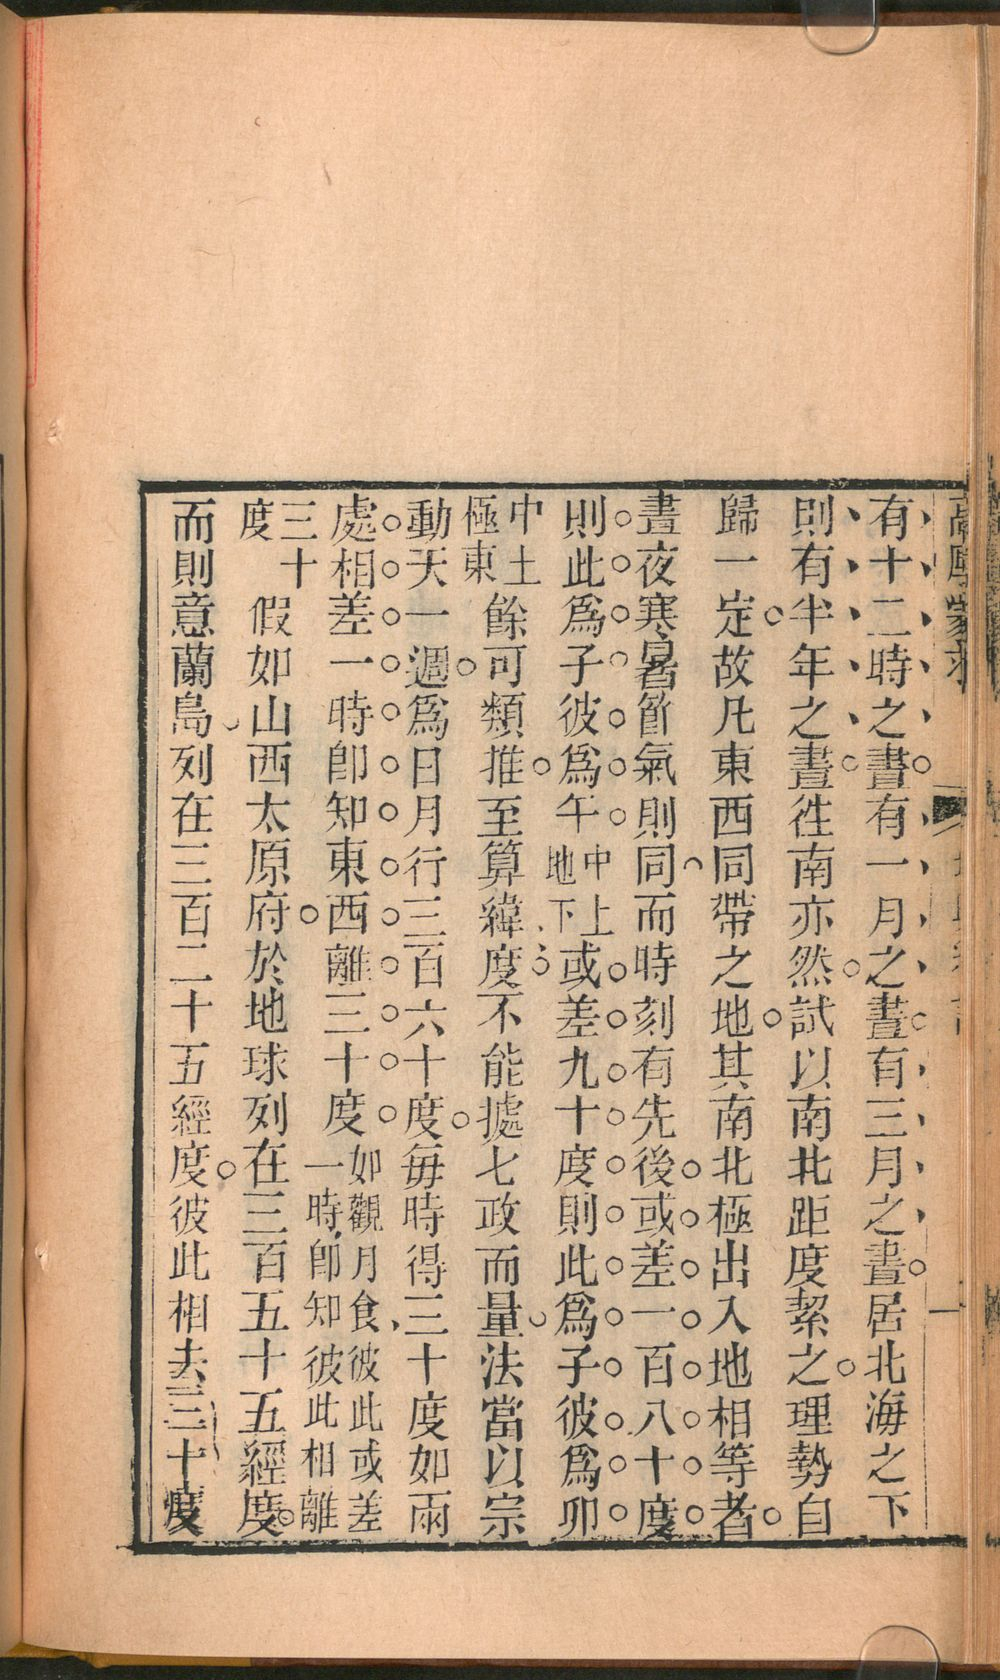 高厚蒙求
有十二時之晝有一月之晝有三月之晝居北海之下
則有半年之晝徃南亦然試以南北距度絜之理勢自
歸一定故凡東西同帶之地其南北極出入地相等者
晝夜寒暑節氣則同而時刻有先後或差一百八十度
則此爲子彼爲午中上地下或差九十度則此爲子彼爲卯
中土極東餘可類推至算緯度不能據七政而量法當以宗
動天一週爲日月行三百六十度每時得三十度如兩
處相差一時卽知東西離三十度如觀月食彼此或差一時卽知彼此相離
三十度假如山西太原府於地球列在三百五十五經度
而則意蘭島列在三百二十五經度彼此相去三十度